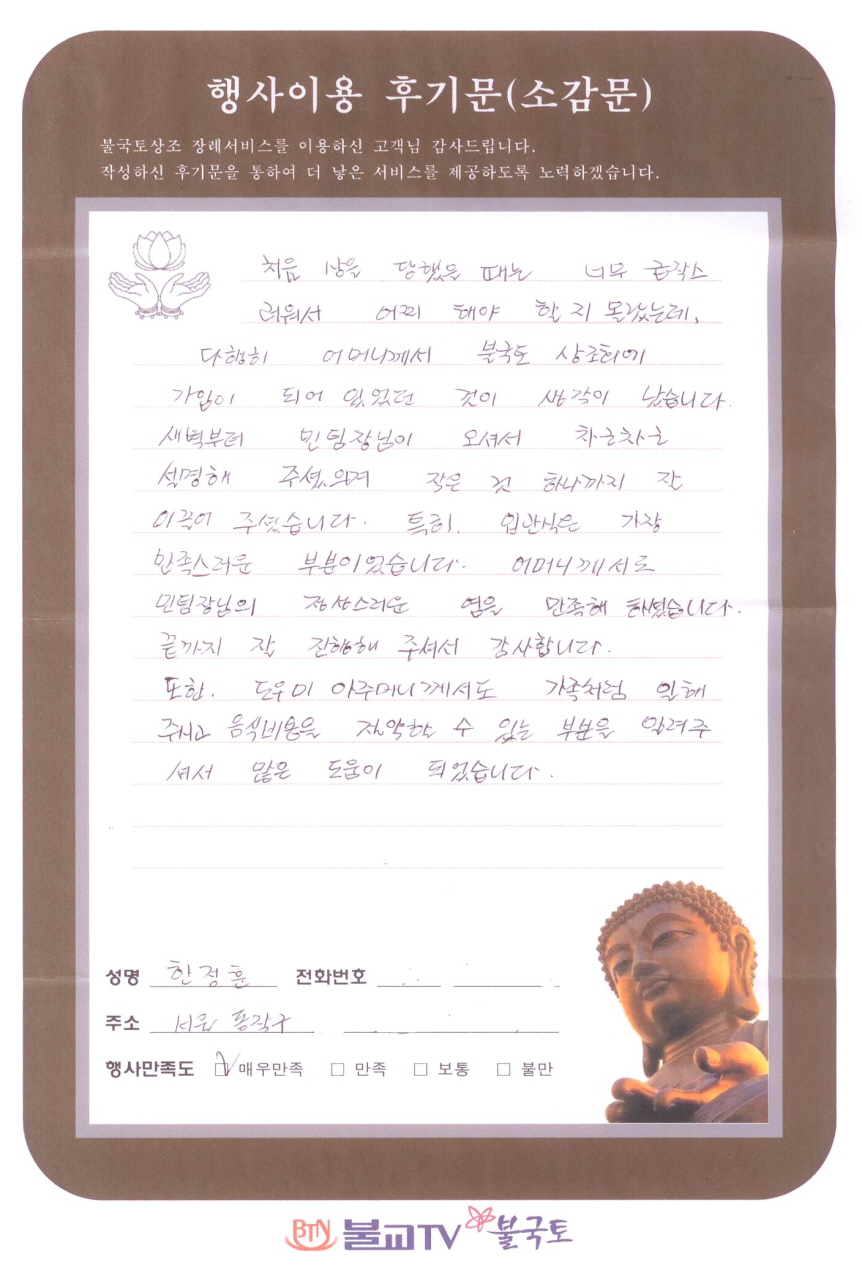 행사이용 후기문(소감문)
불국토상조 장례서비스를 이용하신 고객님 감사드립니다.
작성하신 후기문을 통하여 더 낳은 서비스를 제공하도록 노력하겠습니다.
처음 상을 당했을 때는 너무 급작스
러워서 어찌 해야 할 지 몰랐는데,
다행히 어머니께서 불국토 상조회에
가입이 되어 있었던 것이 생각이 났습니다.
새벽부터 민팀장님이 오셔서 차근차근
설명해 주셨으며 작은 것 하나까지 잘
이끌어 주셨습니다. 특히, 입관식은 가장
만족스러운 부분이었습니다. 어머니께서도
민팀장님의 정성스러운 염을 만족해 하셨습니다.
끝까지 잘 진행해 주셔서 감사합니다.
또한, 도우미 아주머니께서도 가족처럼 일해
주시고 음식비용을 절약할 수 있는 부분을 알려주
셔서 많은 도움이 되었습니다.
성명 한정훈 전화번호
주소 서울 동작구
행사만족도 매우만족 만족 보통 불만
BTN 불교TV 불국토